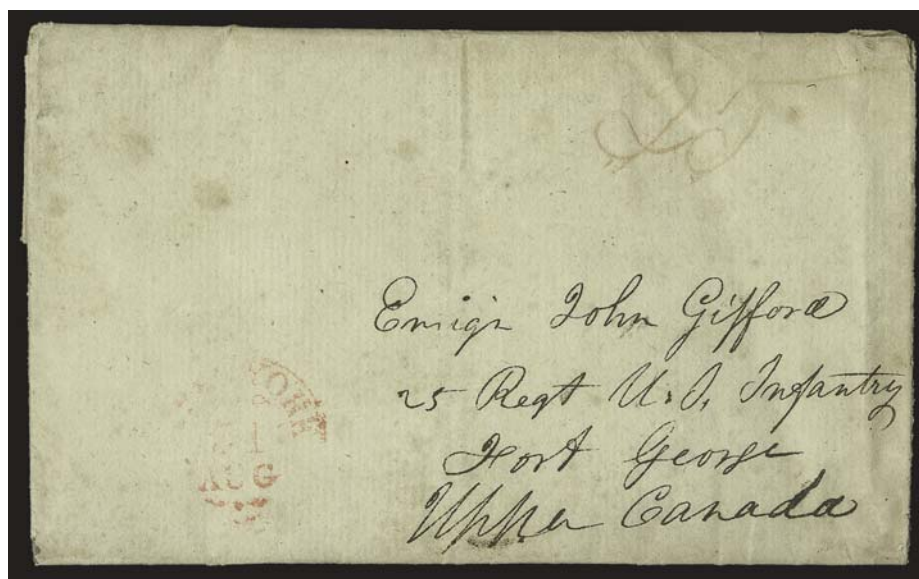 25
Ensign John Gifford
25 Regt U.S. Infantry
Fort George
Upper Canada
AUG